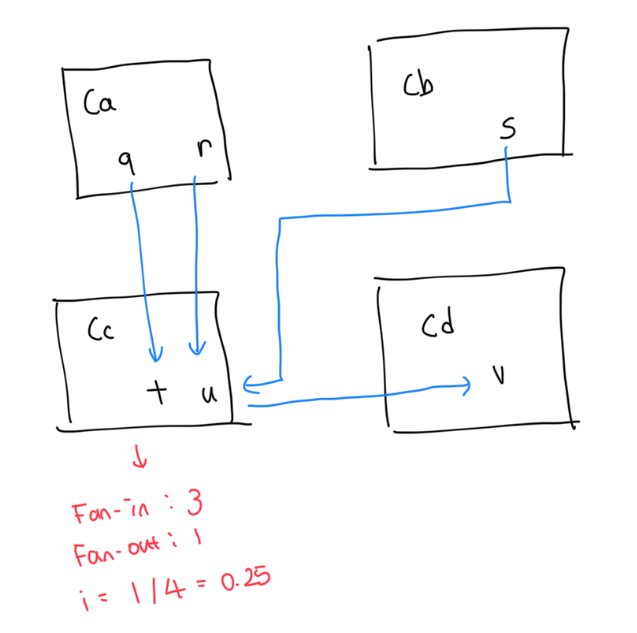 Ca
q r
Cb
s
Cc
t u
Cd
v
Fan-in : 3
Fan-out : 1
i = 1/4 = 0.25